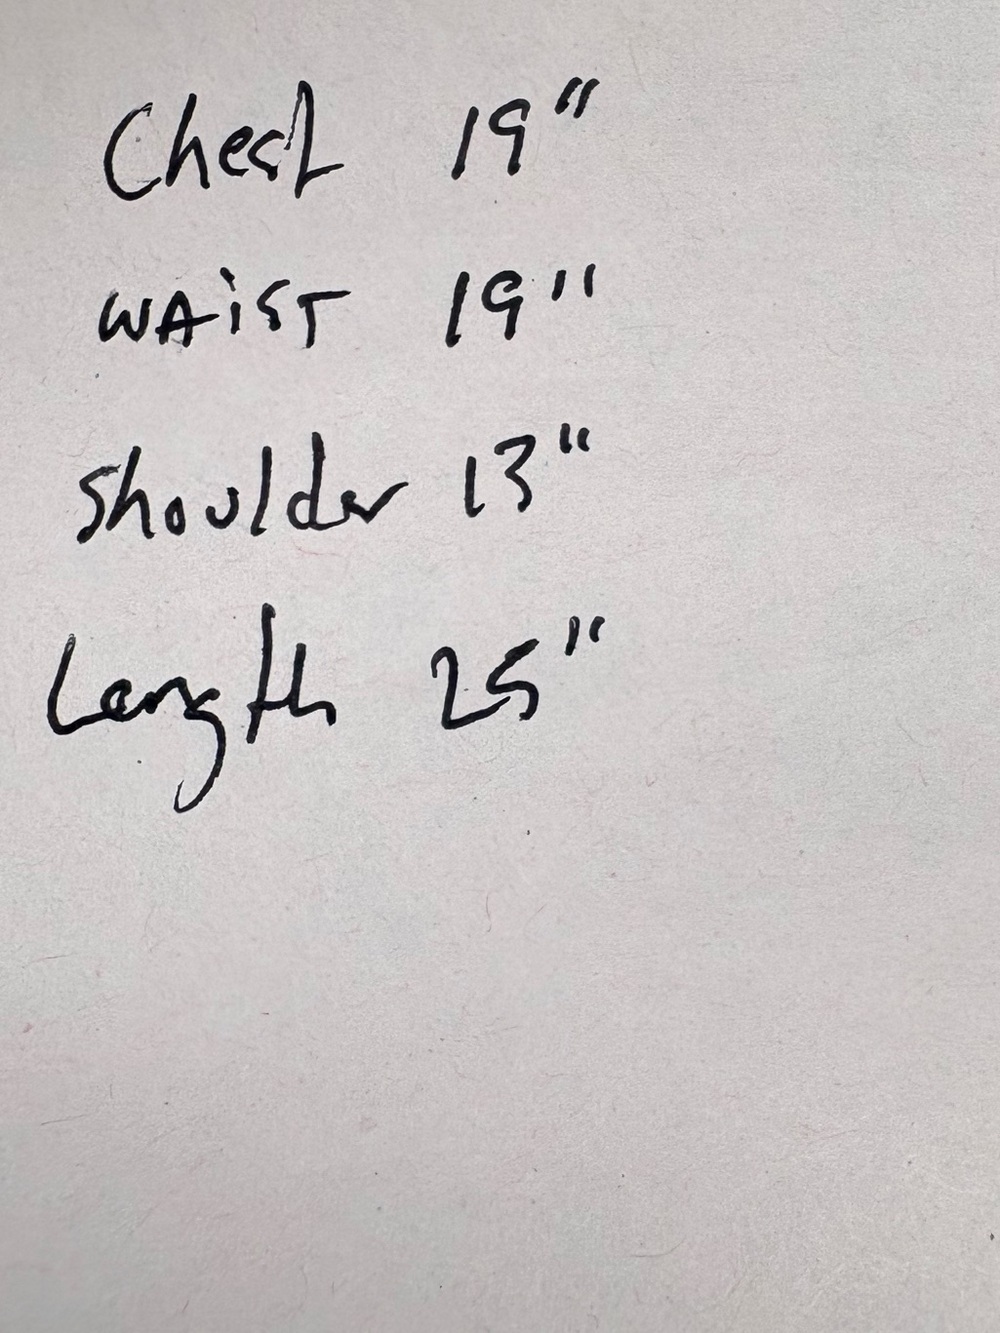 Chest 19"
WAiST 19"
Shoulder 13"
Length 25"